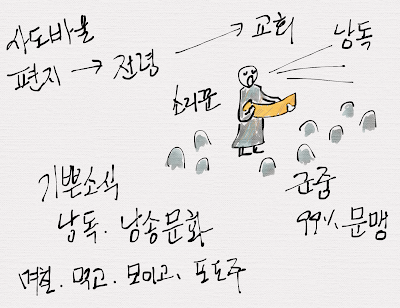 사도바울
편지 → 전령 → 교회
낭독
소리꾼
기쁜소식
군중
낭독. 낭송문화
99% 문맹
명절. 먹고. 모이고. 포도주